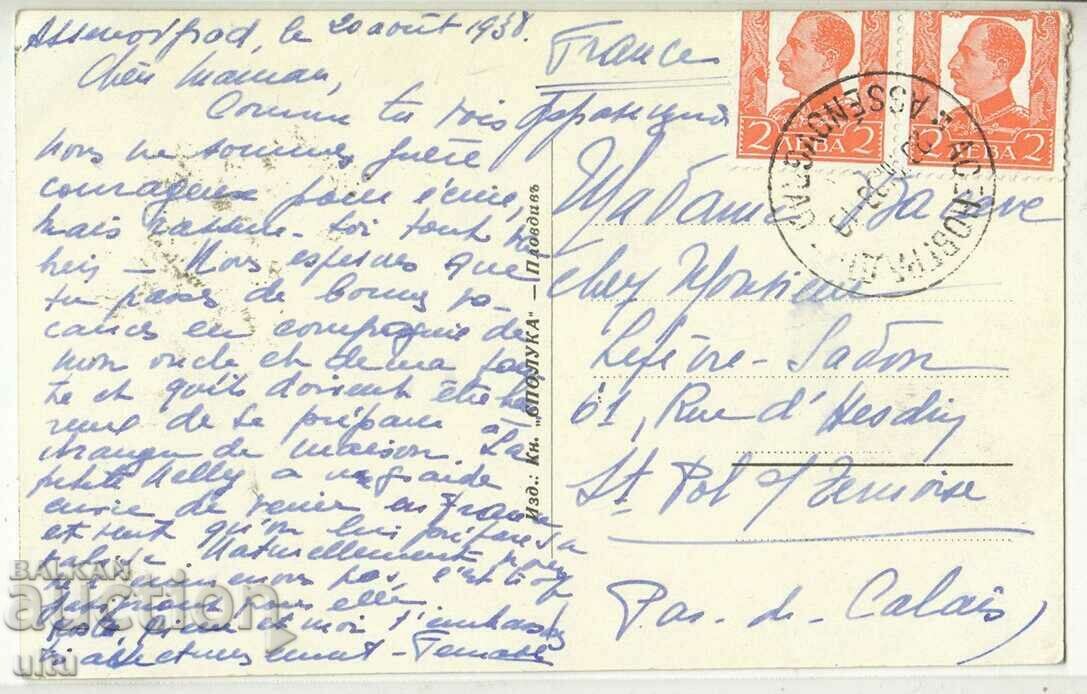 Assenovgrad, le 20 août 1938.
Chère Maman,
Comme tu vois
nous ne sommes guère
courageux pour écrire,
mais rassure-toi tout va
bien - Nous espérons que
tu passes de bonnes va-
cances en compagnie de
mon oncle et de ma tan-
te et qu'ils doivent être
de se préparer à
changer de maison. La
petite Nelly a
envie de venir en France
et veut qu'on lui prépare sa
valise Naturellement nous
pas, c'est
pour elle
et moi t'embrassons
affectueusement -
France
Франция
Madame
chez Monsieur
Lefèvre-Sadon
61, Rue d'Hesdin
St Pol s/Ternoise
Pas-de-Calais
Изд.: Кн. „СПОЛУКА“ — Пловдивъ
2 ЛЕВА 2
2 ЛЕВА 2
АСЕНОВГРАДЪ
ASSENOVGRAD
BALKAN
auction
uftu